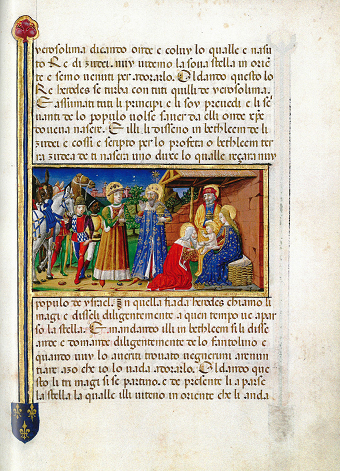 yerosolima dicando onde e coluy lo qualle e nasu
to Re di zudei. nuy uidemo la soua stella in orie
te e semo uenuti per adorarlo. Oldando questo lo
Re herodes se turba con tuti quilli de yerosolima.
E assunati tuti li principi e li soy preuedi e li se
uanti de lo populo uolse sauer da elli onde xpe
doueua nasere. E illi li disseno in bethleem de li
zudei e cossi e scripto per lo profeta o bethleem ter
ra zudea de ti nasera uno duxe lo qualle regiara my
populo de ysrael. In quella fiada herodes chiamo li
magi e disseli diligentemente a quen tempo ue apar
so la stella. E mandando illi in bethleem si li disse
ande e domande diligentemente de lo fantolino e
quando uuy lo auereti trouato uegneremi a renun
ciare azo che io lo uada adorarlo. Oldando que
sto li tri magi si se partino. e de presente li a parse
la stella la qualle illi uiteno in oriente che li anda